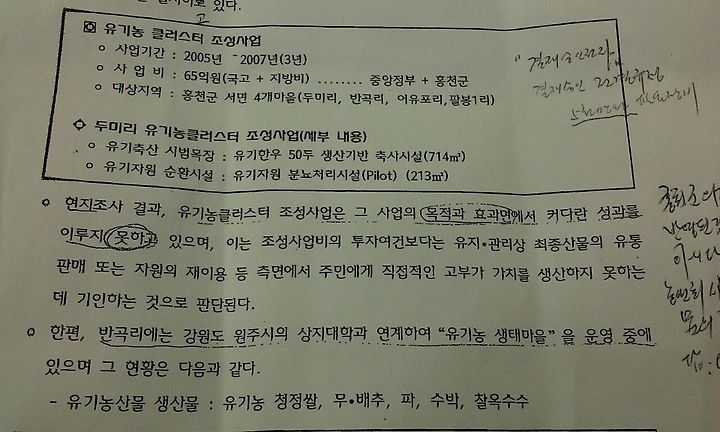 있다.
고
유기농 클러스터 조성사업
○ 사업기간 : 2005년 ~2007년(3년)
○ 사 업 비 : 65억원(국고 + 지방비) ........ 중앙정부 + 홍천군
○ 대상지역 : 홍천군 서면 4개마을(두미리, 반곡리, 어유포리,팔봉1리)
◇ 두미리 유기농클러스터 조성사업(세부 내용)
○ 유기축산 시범목장 : 유기한우 50두 생산기반 축사시설(714㎡)
○ 유기자원 순환시설 : 유기자원 분뇨처리시설(Pilot) (213㎡)
○ 현지조사 결과, 유기농클러스터 조성사업은 그 사업의 목적과 효과면에서 커다란 성과를
이루지 못하고 있으며, 이는 조성사업비의 투자여건보다는 유지•관리상 최종산물의 유통
판매 또는 자원의 재이용 등 측면에서 주민에게 직접적인 고부가 가치를 생산하지 못하는
데 기인하는 것으로 판단된다.
○ 한편, 반곡리에는 강원도 원주시의 상지대학과 연계하여 "유기농 생태마을"을 운영 중에
있으며 그 현황은 다음과 같다.
- 유기농산물 생산물 : 유기농 청정쌀, 무•배추, 파, 수박, 찰옥수수